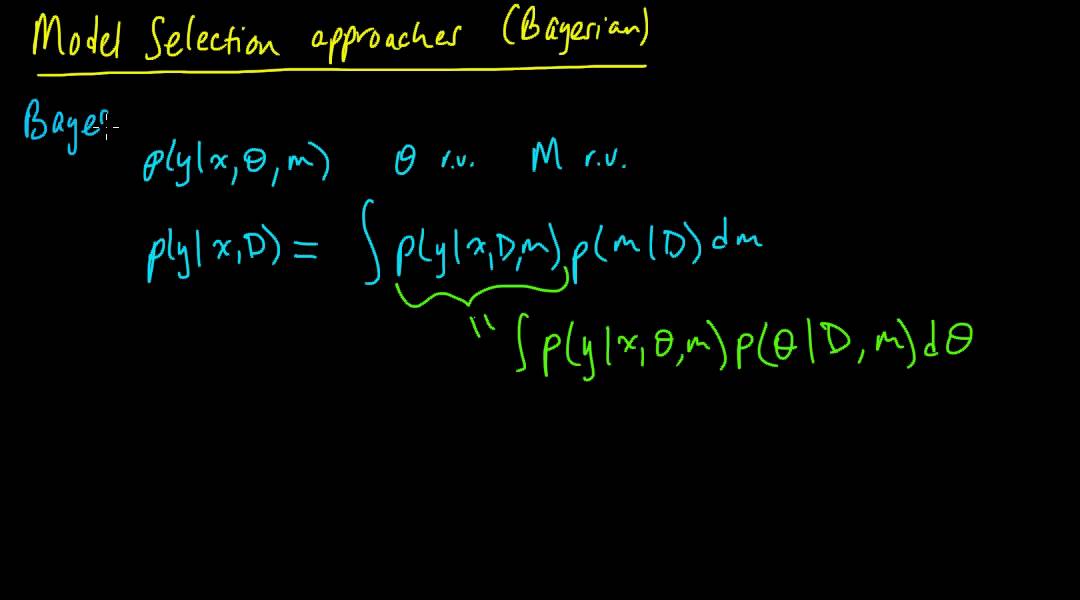 Model Selection approaches (Bayesian)
Bayes
p(y|x,θ,m) θ r.v. M r.v.
p(y|x,D) = ∫ p(y|x,D,m) p(m|D) dm
" ∫ p(y|x,θ,m) p(θ|D,m) dθ